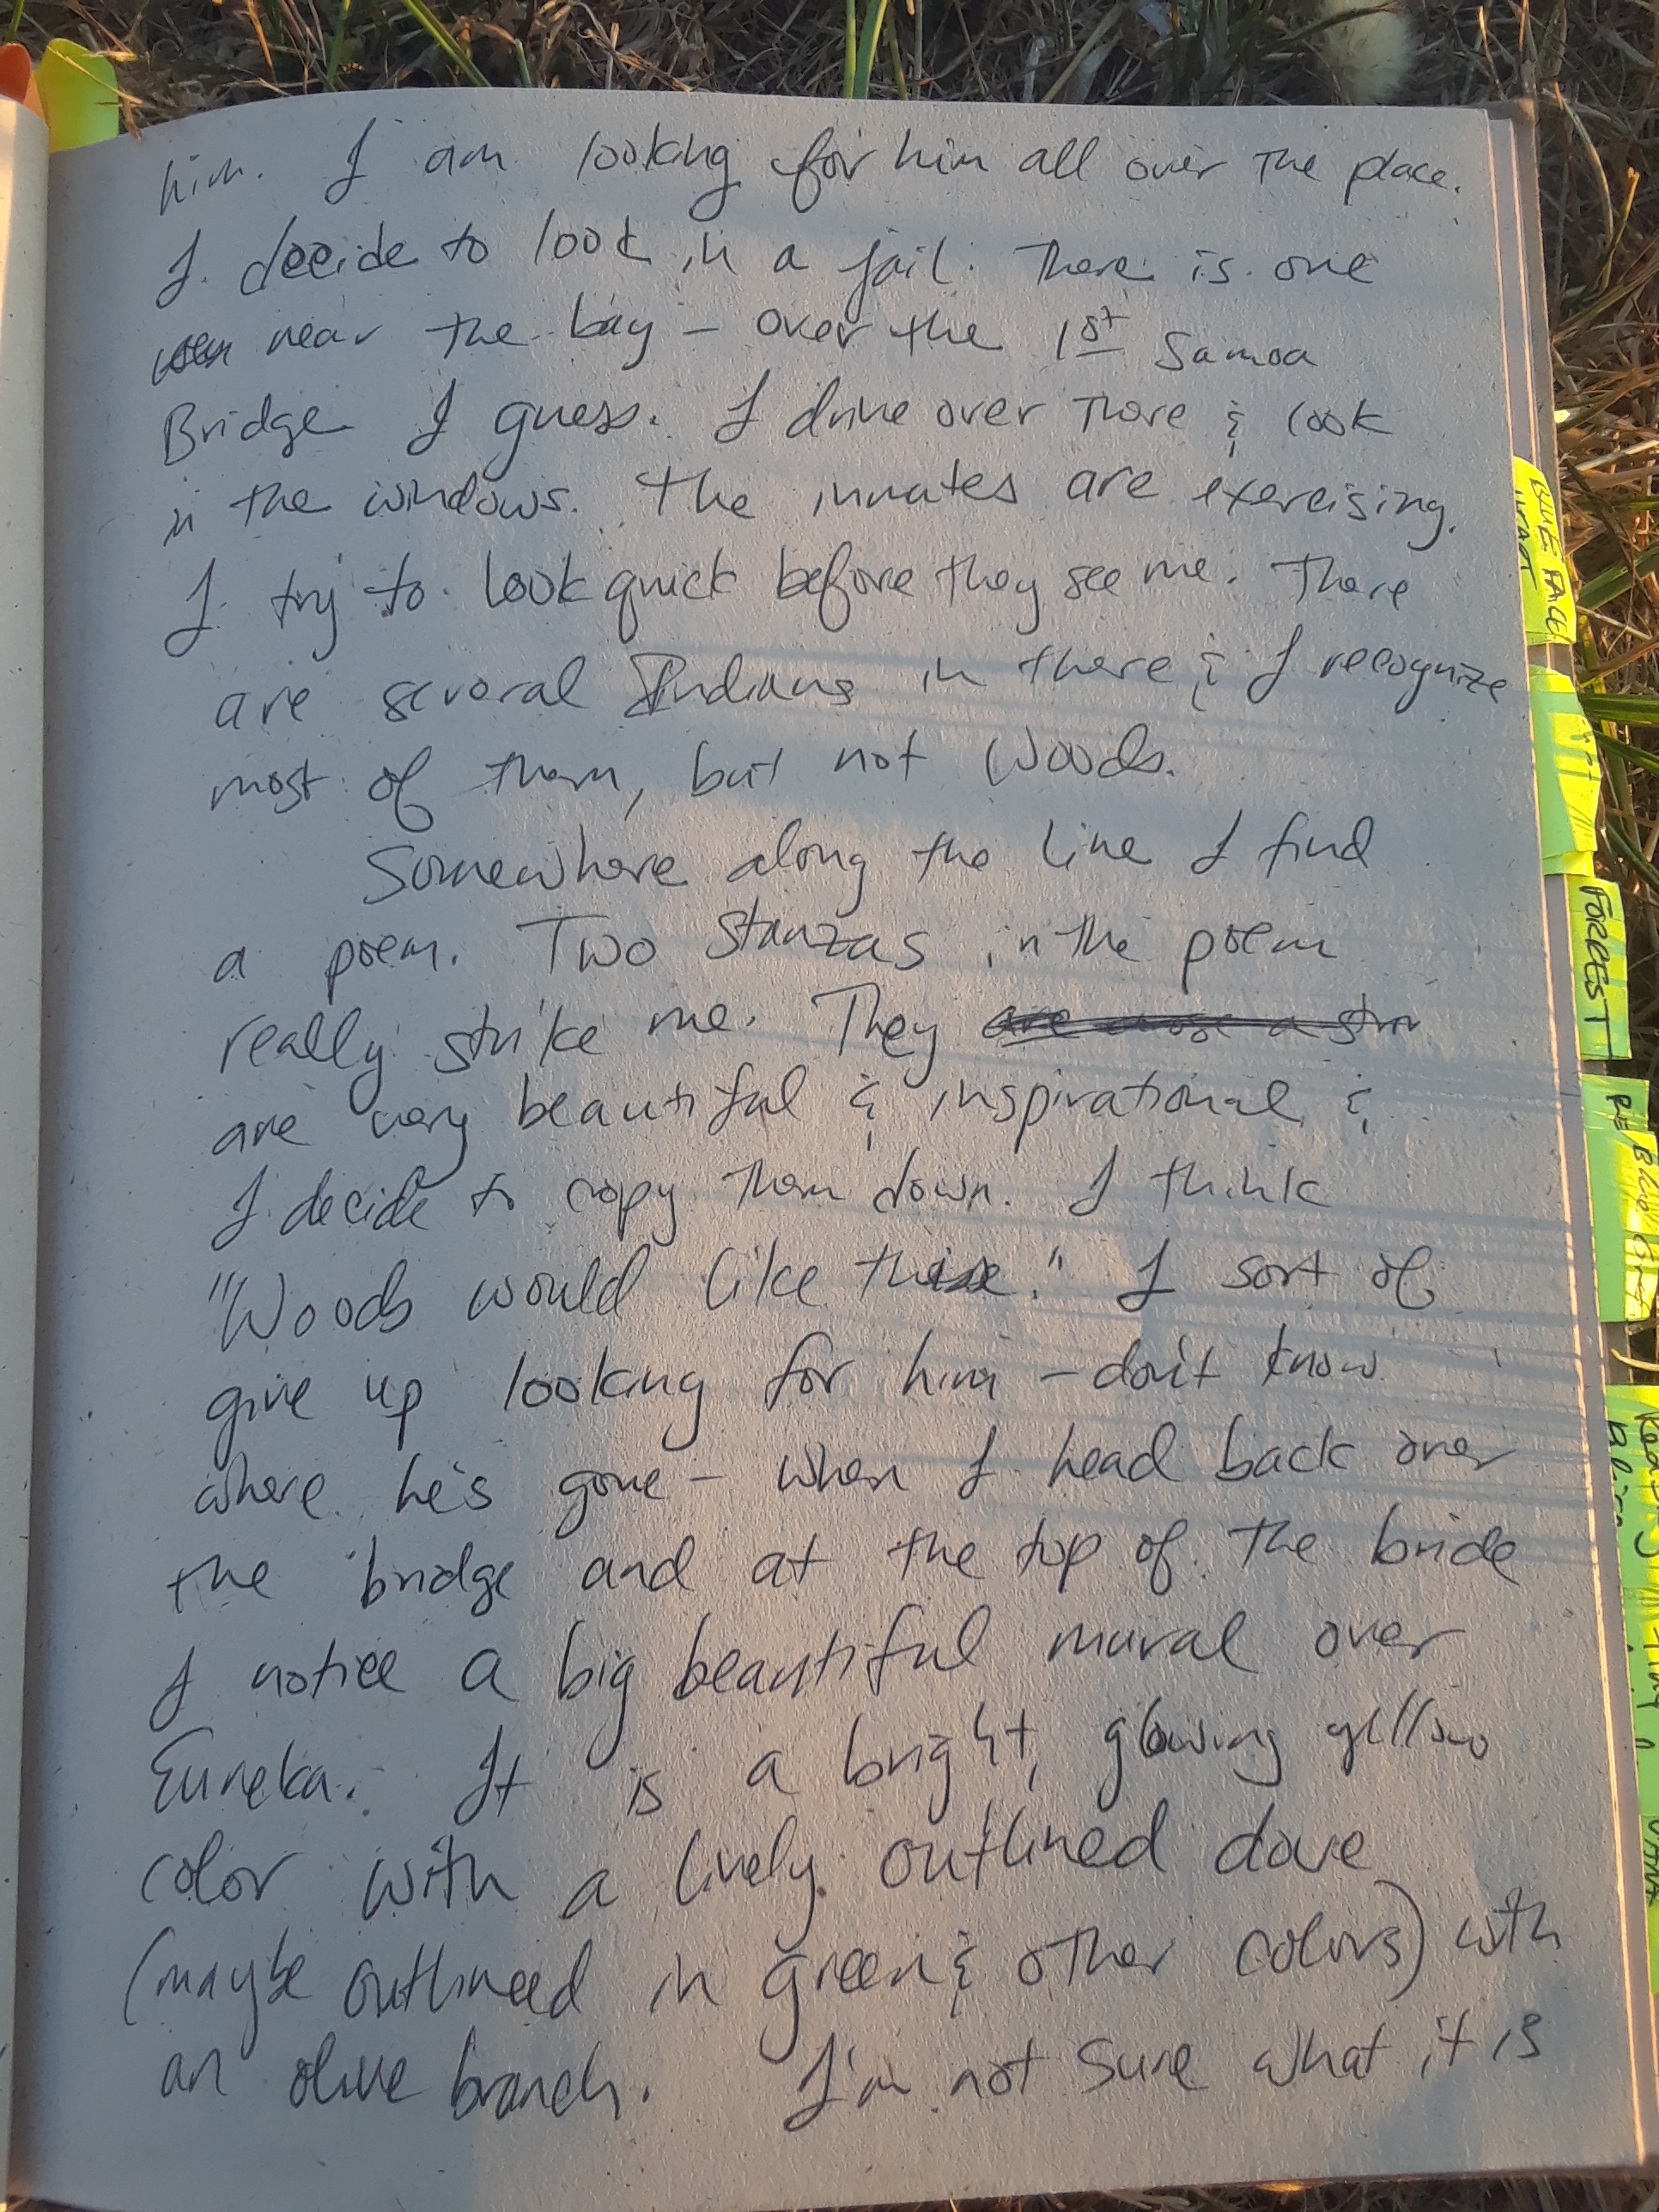 him. I am looking for him all over the place.
I decide to look in a jail. There is one
near the bay – over the 1st Samoa
Bridge I guess. I drive over there & look
in the windows. The inmates are exercising.
I try to look quick before they see me. There
are several Indians in there & I recognize
most of them, but not Woods.
Somewhere along the line I find
a poem. Two stanzas in the poem
really strike me. They
are very beautiful & inspirational &
I decide to copy them down. I think
"Woods would like these." I sort of
give up looking for him – don't know
where he's gone – when I head back over
the bridge and at the top of the bride
I notice a big beautiful mural over
Eureka. It is a bright, glowing yellow
color with a lively outlined dove
(maybe outlineed in green & other colors) with
an olive branch. I'm not sure what it is
BLUE FACE
FORREST